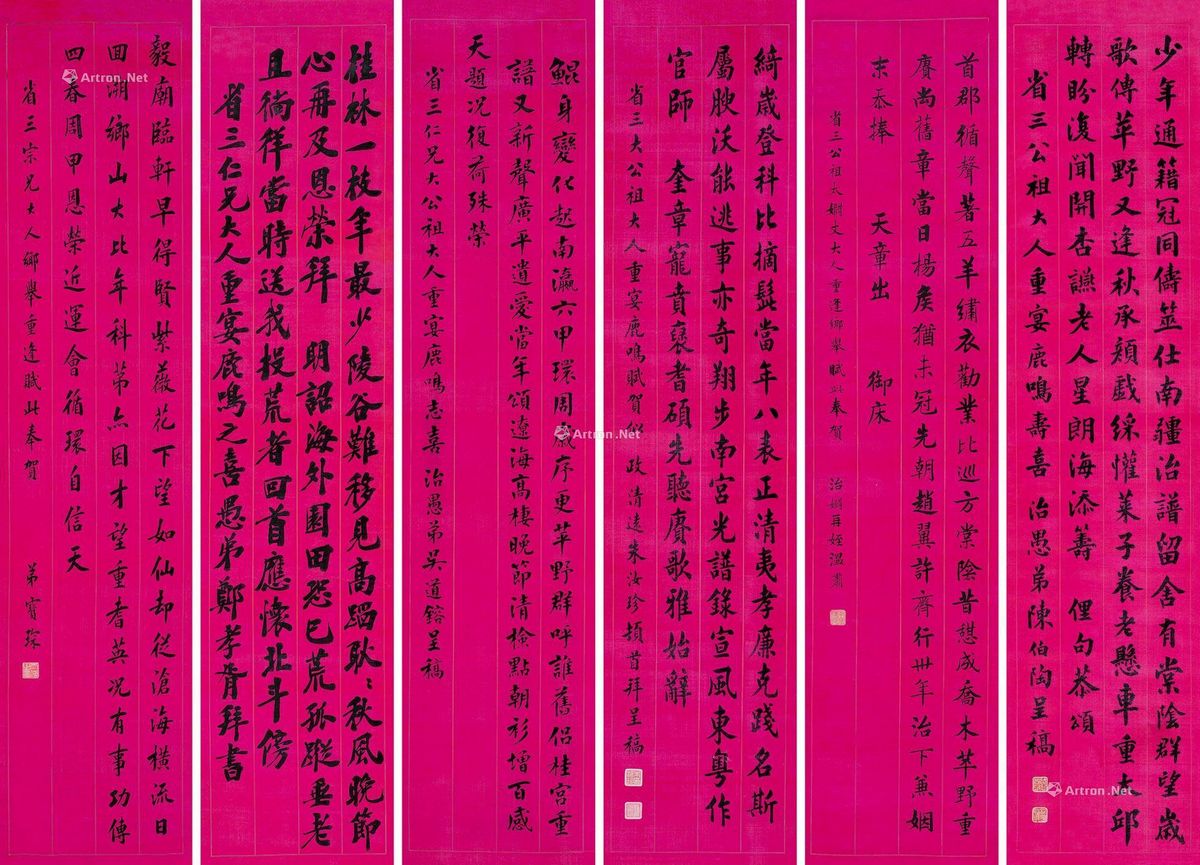 少年通籍冠同儔筮仕南疆治譜留舍有棠陰群望歲
歌傳苹野又逢秋承頮戲綵懽萊子養老懸車重太邱
轉盼復聞開杏讌老人星朗海添籌 俚句恭頌
省三公祖大人重宴鹿鳴壽喜 治愚弟陳伯陶呈稿
首郡循聲著五羊繡衣勸業比巡方棠陰昔憩成喬木苹野重
賡尚舊章當日楊矦猶未冠先朝趙翼許齊行卅年治下兼姻
末忝捧 天章出 御床
省三公祖太姻丈大人重逢鄉舉賦此奉賀 治姻再姪溫肅
綺歲登科比摘髭當年八表正清夷孝廉克踐名斯
屬腴沃能逃事亦奇翔步南宮光譜錄宣風東粵作
官師 奎章寵賁褒耆碩先聽賡歌雅始辭
省三大公祖大人重宴鹿鳴賦賀似 政 清遠朱汝珍頓首拜呈稿
鯤身變化起南瀛六甲環周歲序更苹野群呼誰舊侶桂宮重
譜又新聲廣平遺愛當年頌遼海高棲晚節清檢點朝衫增百感
天題况復荷殊榮
省三仁兄大公祖大人重宴鹿鳴志喜 治愚弟吳道鎔呈稿
桂林一枝年最少陵谷難移見高蹈耿耿秋風晚節
心再及恩榮拜 明詔海外園田恐已荒孤蹤垂老
且徜徉當時送我投荒者回首應懷北斗傍
省三仁兄大人重宴鹿鳴之喜愚弟鄭孝胥拜書
毅廟臨軒早得賢紫薇花下望如仙却從滄海橫流日
回溯鄉山大比年科第亦因才望重耆英况有事功傳
四春周甲恩榮近運會循環自信天
省三宗兄大人鄉舉重逢賦此奉賀 弟寶琛
Artron.Net
Artron.Net
Artron.Net